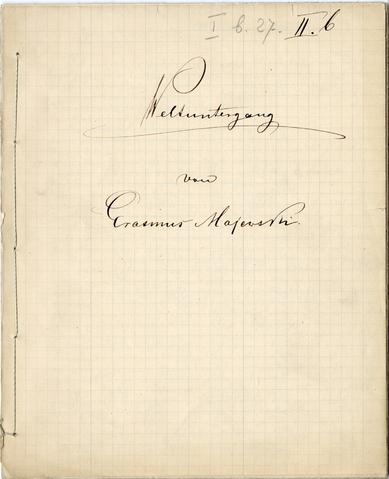 I b.27. II.b
Weltuntergang
von
Erasmus Majewski.